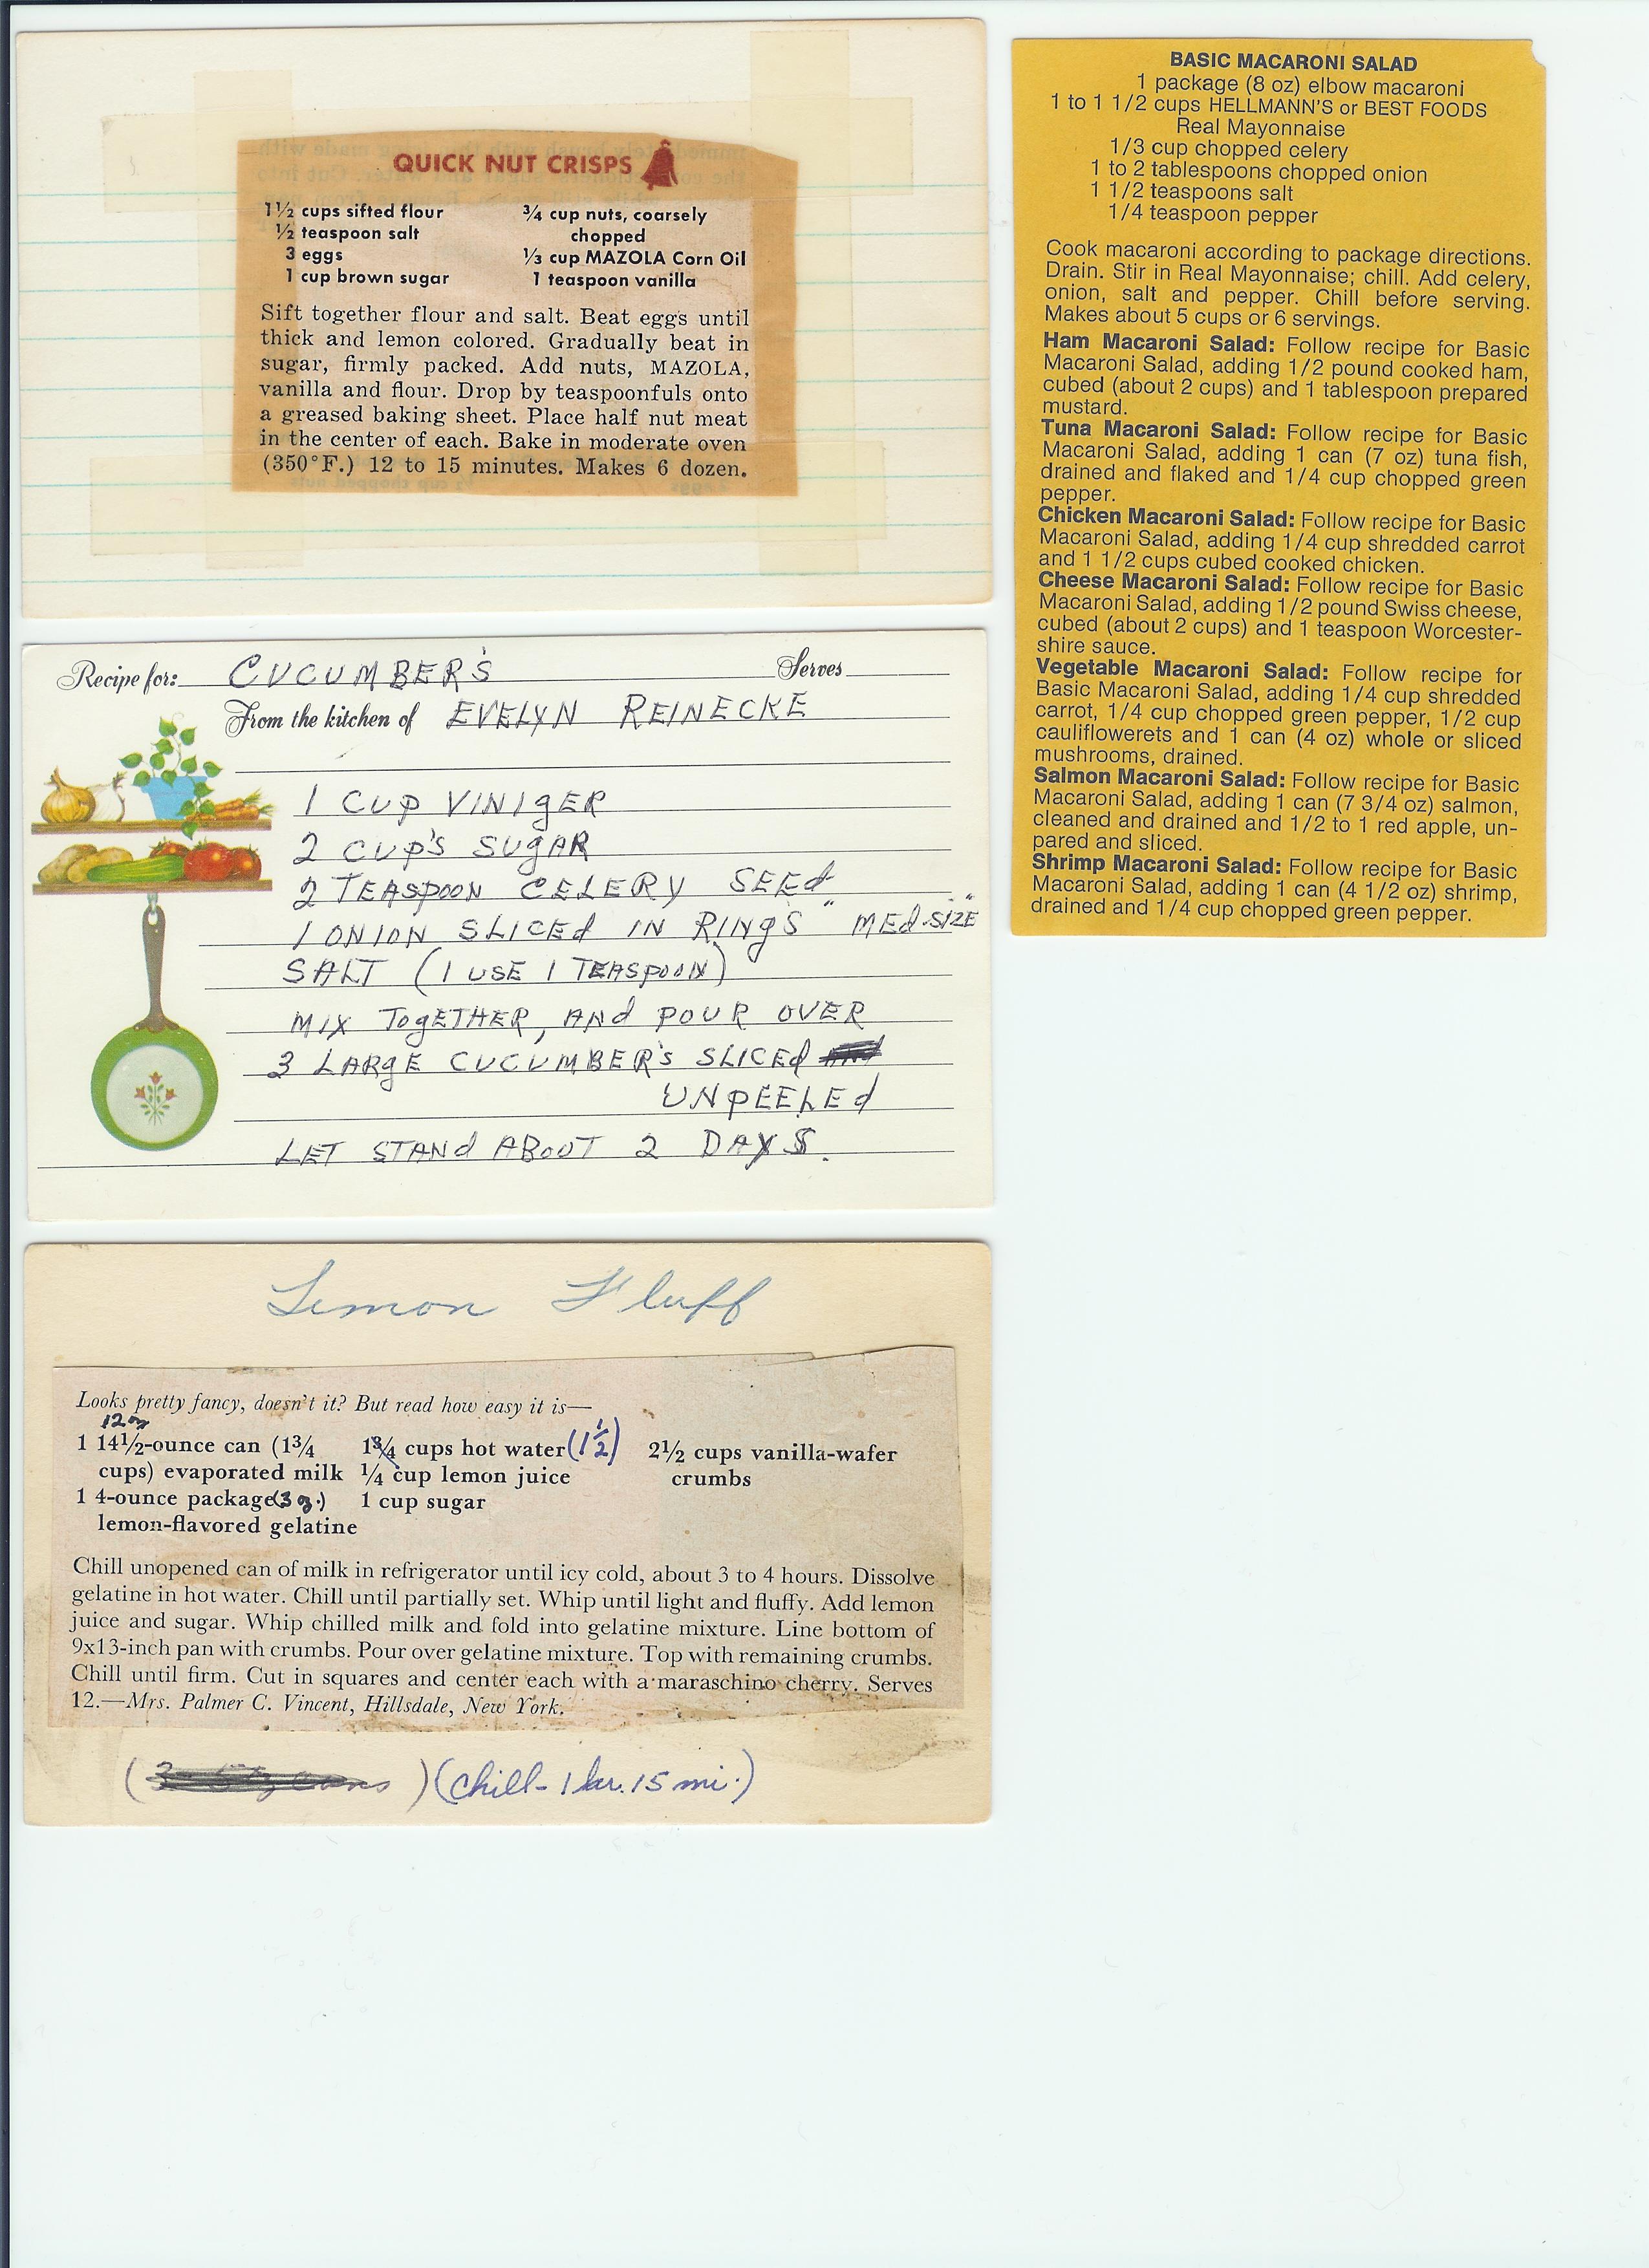 QUICK NUT CRISPS
1½ cups sifted flour
½ teaspoon salt
3 eggs
1 cup brown sugar
¾ cup nuts, coarsely
chopped
⅓ cup MAZOLA Corn Oil
1 teaspoon vanilla
Sift together flour and salt. Beat eggs until
thick and lemon colored. Gradually beat in
sugar, firmly packed. Add nuts, MAZOLA,
vanilla and flour. Drop by teaspoonfuls onto
a greased baking sheet. Place half nut meat
in the center of each. Bake in moderate oven
(350°F.) 12 to 15 minutes. Makes 6 dozen.
Recipe for: CUCUMBER'S Serves
From the kitchen of EVELYN REINECKE
1 CUP VINIgER
2 CUP'S SUgAR
2 TEASPOON CELERY SEEd
1 ONION SLICEd IN RINg'S "MEd-SIZE"
SALT (I USE 1 TEASPOON)
MIX TOgETHER, ANd POUR OVER
3 LARgE CUCUMBER'S SLICEd
UNPEELEd
LET STANd ABOUT 2 DAYS.
Lemon Fluff
Looks pretty fancy, doesn't it? But read how easy it is—
12 oz
1 14½-ounce can (1¾
cups) evaporated milk
1 4-ounce package (3 oz.)
lemon-flavored gelatine
1¾ cups hot water (1½)
¼ cup lemon juice
1 cup sugar
2½ cups vanilla-wafer
crumbs
Chill unopened can of milk in refrigerator until icy cold, about 3 to 4 hours. Dissolve
gelatine in hot water. Chill until partially set. Whip until light and fluffy. Add lemon
juice and sugar. Whip chilled milk and fold into gelatine mixture. Line bottom of
9x13-inch pan with crumbs. Pour over gelatine mixture. Top with remaining crumbs.
Chill until firm. Cut in squares and center each with a maraschino cherry. Serves
12.—Mrs. Palmer C. Vincent, Hillsdale, New York.
(chill- 1 hr. 15 mi.)
BASIC MACARONI SALAD
1 package (8 oz) elbow macaroni
1 to 1 1/2 cups HELLMANN'S or BEST FOODS
Real Mayonnaise
1/3 cup chopped celery
1 to 2 tablespoons chopped onion
1 1/2 teaspoons salt
1/4 teaspoon pepper
Cook macaroni according to package directions.
Drain. Stir in Real Mayonnaise; chill. Add celery,
onion, salt and pepper. Chill before serving.
Makes about 5 cups or 6 servings.
Ham Macaroni Salad: Follow recipe for Basic
Macaroni Salad, adding 1/2 pound cooked ham,
cubed (about 2 cups) and 1 tablespoon prepared
mustard.
Tuna Macaroni Salad: Follow recipe for Basic
Macaroni Salad, adding 1 can (7 oz) tuna fish,
drained and flaked and 1/4 cup chopped green
pepper.
Chicken Macaroni Salad: Follow recipe for Basic
Macaroni Salad, adding 1/4 cup shredded carrot
and 1 1/2 cups cubed cooked chicken.
Cheese Macaroni Salad: Follow recipe for Basic
Macaroni Salad, adding 1/2 pound Swiss cheese,
cubed (about 2 cups) and 1 teaspoon Worcester-
shire sauce.
Vegetable Macaroni Salad: Follow recipe for
Basic Macaroni Salad, adding 1/4 cup shredded
carrot, 1/4 cup chopped green pepper, 1/2 cup
cauliflowerets and 1 can (4 oz) whole or sliced
mushrooms, drained.
Salmon Macaroni Salad: Follow recipe for Basic
Macaroni Salad, adding 1 can (7 3/4 oz) salmon,
cleaned and drained and 1/2 to 1 red apple, un-
pared and sliced.
Shrimp Macaroni Salad: Follow recipe for Basic
Macaroni Salad, adding 1 can (4 1/2 oz) shrimp,
drained and 1/4 cup chopped green pepper.